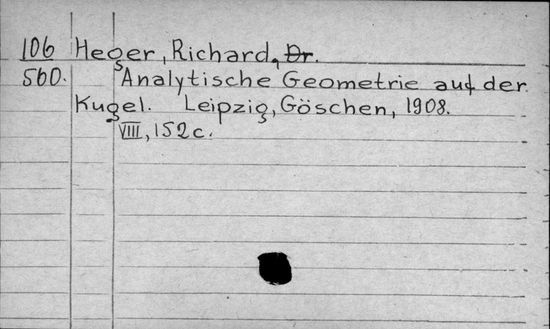 106 Heger, Richard, Dr.
560. Analytische Geometrie auf der
Kugel. Leipzig, Göschen, 1908.
VIII, 152 c.